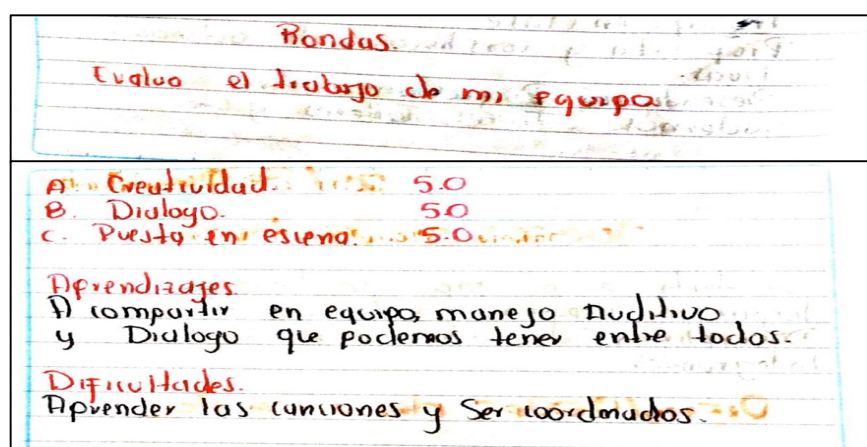 Rondas.
Evaluo el trabajo de mi equipo
A. Creatividad. 5.0
B. Dialogo. 5.0
C. Puesta en escena. 5.0
Aprendizajes
A compartir en equipo, manejo Auditivo
y Dialogo que podemos tener entre todos.
Dificultades.
Aprender las canciones y Ser coordinados.